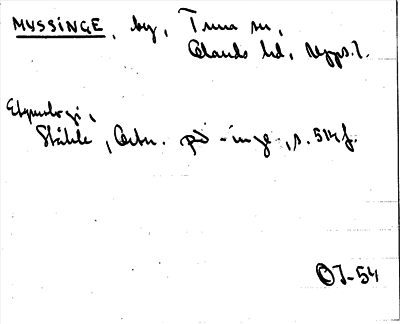 MYSSINGE, by, Tuna sn,
Olands hd, Upps.l.
Etymologi,
Ståhle, Ortn. på -inge, s. 514 f.
OJ-54